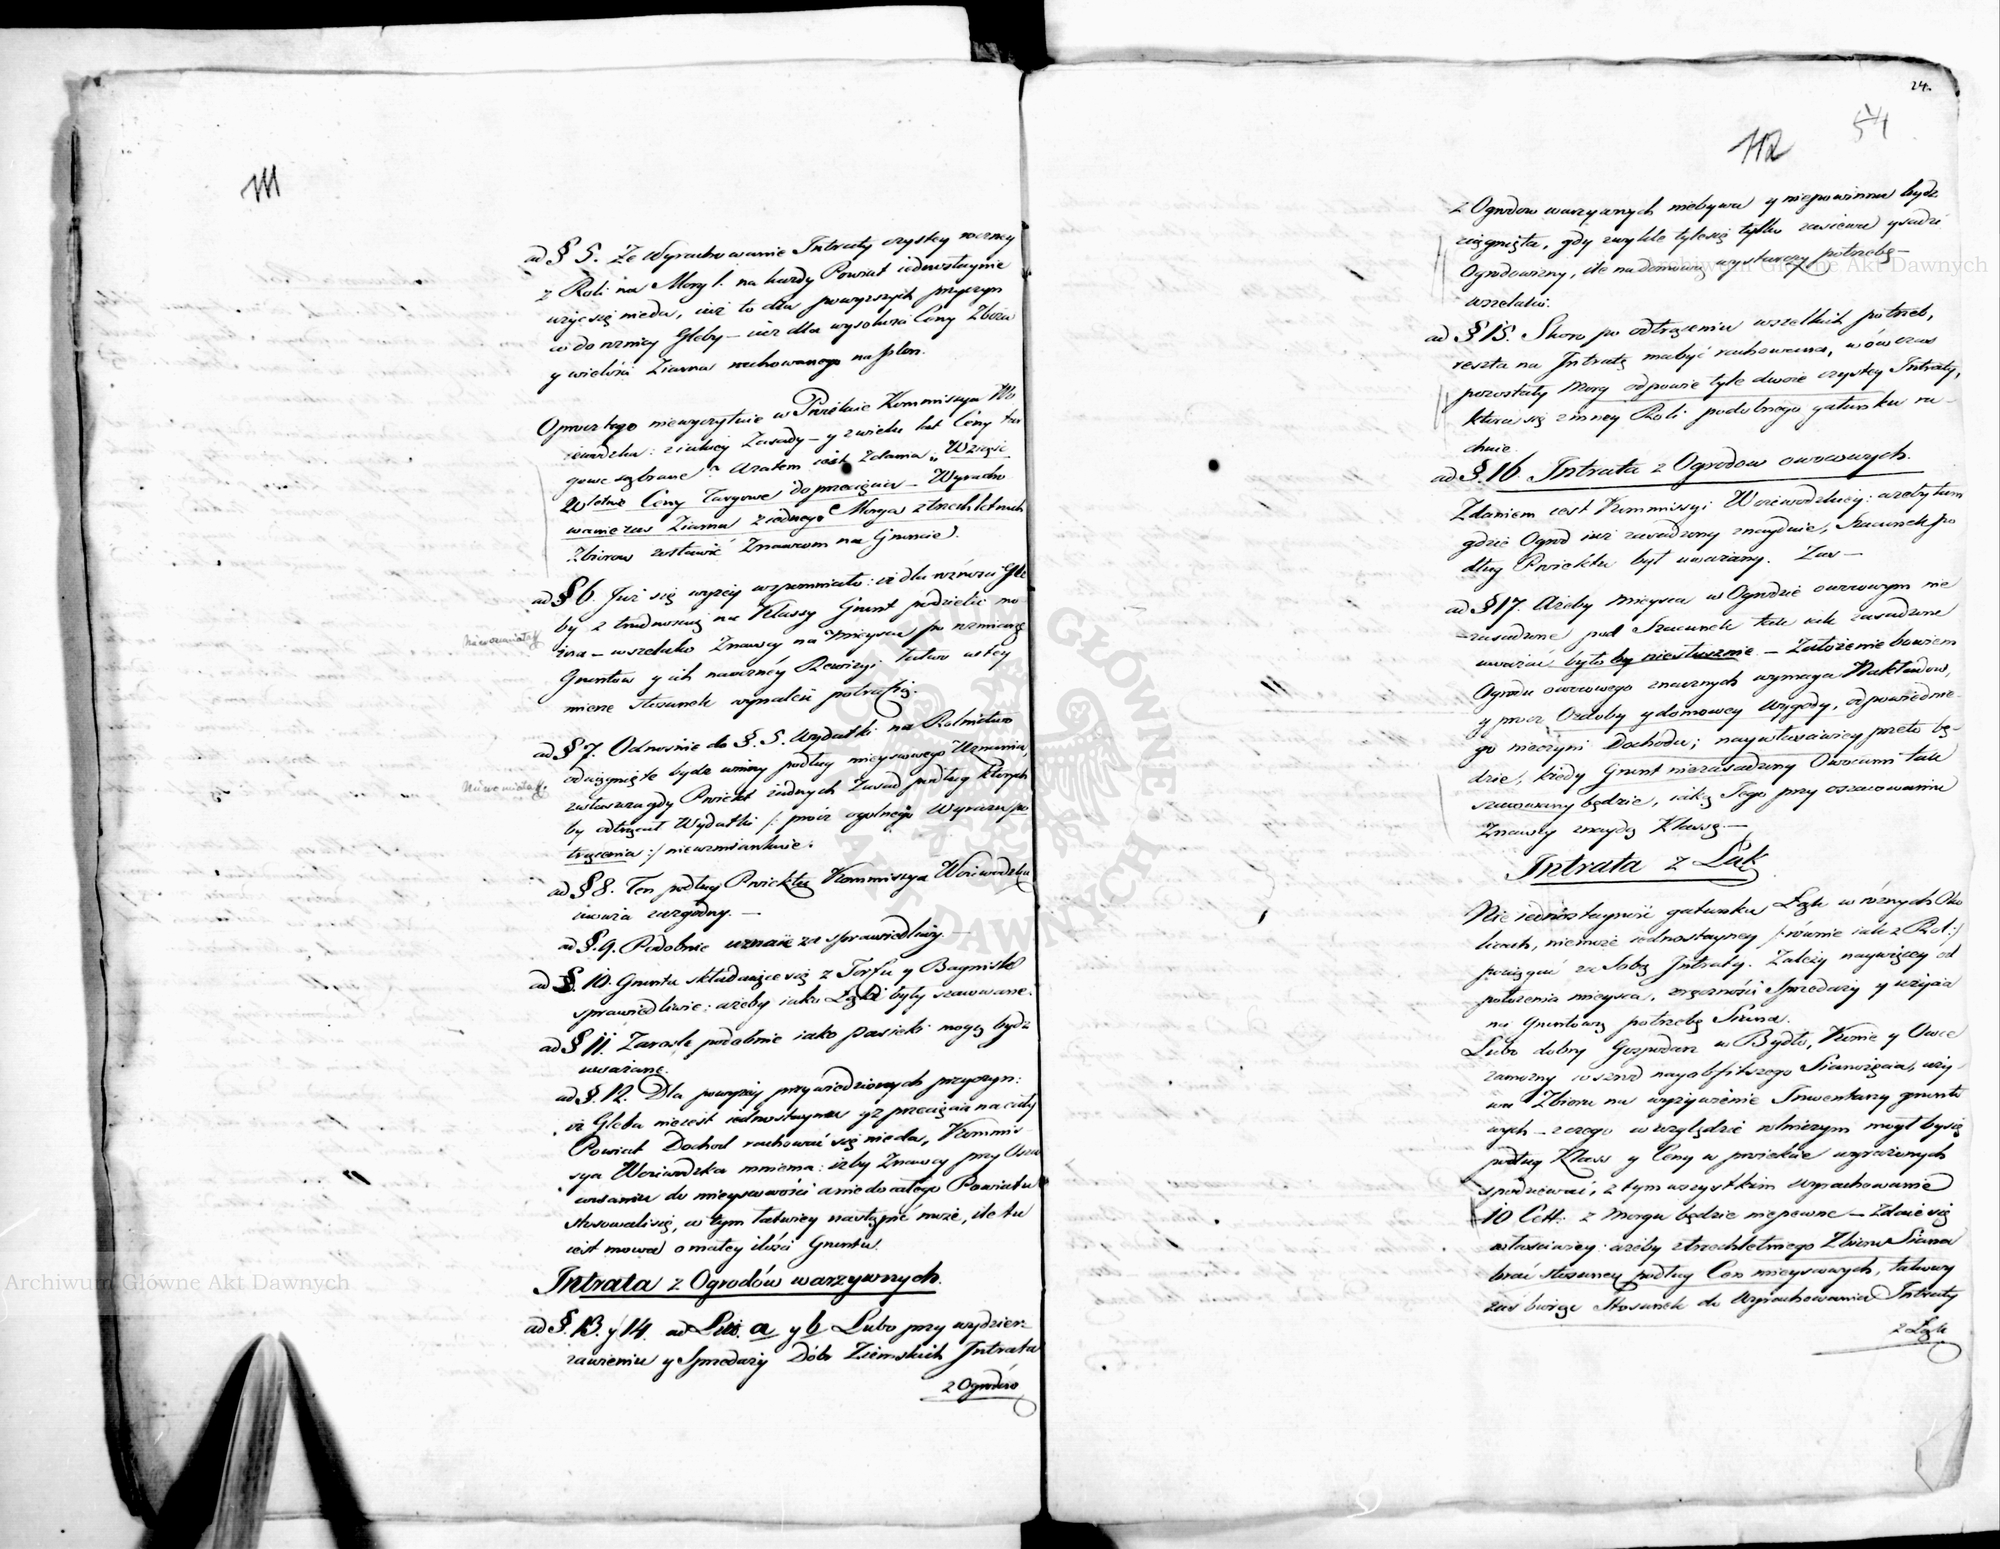 111
ad § 5. Że Wyrachowanie Intraty czystey roczney
z Roli na Morg 1. na każdy Powiat iednostaynie
użyć się nieda, iuż to dla powyższych przyczyn
co do różnicy Gleby – iuż dla wysokości Ceny Zboża
y wielości Ziarna rachowanego na plon.
Oprocz tego niewyczytuie w Proiekcie Kommissya Wo
iewodzka: z iakiey Zasady – y z wielu lat Ceny tar
gowe są brane? a zatem iest Zdania „Wziąść
letnie Ceny Targowe do przecięcia – Wyracho
wanie zaś Ziarna z iednego Morga z trzechletnich
Zbiorow zostawić Znawcom na Gruncie".
ad § 6. Już się wyżey wspomniało: iż dla różności Gle
by z trudnością na Klassy Grunt podzielić mo
żna – wszelako Znawcy na Mieyscu po rozmiarze
Gruntow y ich naoczney Rewizyi łatwo w tey
mierze Stosunek wynaleść potrafią.
ad § 7. Odnośnie do §. 5. Wydatki na Rolnictwo
odciągnięte bydź winny podług mieyscowego Uznania
zwłaszcza gdy Proiekt żadnych Zasad podług ktorych
by odtrącać Wydatki /: procz ogolnego Wyrazu po
trącenia :/ niewzmiankuie.
ad § 8. Ten podług Proiektu Kommissya Woiewodzka
uważa zazgodny. —
ad §. 9. Podobnie uznaie za sprawiedliwy. —
ad §. 10. Grunta składaiące się z Torfu y Bagnisk
sprawiedliwie: ażeby iako Łąki były szacowane.
ad § 11. Zarośle podobnie iako Pasieki mogą bydź
uważane.
ad §. 12. Dla powyżey przywiedzionych przyczyn:
iż Gleba nieiest iednostayna y z przecięcia na cały
Powiat Dochod rachować się nieda, Kommis
sya Woiewodzka mniema: iżby Znawcy przy Osza
cowaniu do mieyscowości a nie do całego Powiatu
stosowali się, co tym łatwiey nastąpić może, ile tu
iest mowa o małey ilości Gruntu.
Intrata z Ogrodów warzywnych.
ad §. 13. y 14. ad Litt. a y b Lubo przy wydzier
żawieniu y Sprzedaży Dóbr Ziemskich Intrata
z Ogrodów
24.
54
112
z Ogrodow warzywnych niebywa y niepowinna bydź
ciągnięta, gdy zwykle tyle się tylko zasiewa y sadzi
Ogrodowizny, ile na domową wystarczy potrzebę –
wszelako:
ad § 15. Skoro po odtrąceniu wszelkich potrzeb,
reszta na Intratę ma być rachowana, wówczas
pozostały Morg odpowie tyle dwoie czystey Intraty,
ktora się z inney Roli podobnego gatunku ra–
chuie.
ad §. 16. Intrata z Ogrodow owocowych.
Zdaniem iest Kommissyi Woiewodzkiey: ażeby tam
gdzie Ogrod iuż zasadzony znayduie, Szacunek po
dług Proiektu był uważany. Zaś —
ad § 17. Ażeby mieysca w Ogrodzie owocowym nie
zasadzone pod Szacunek tak iak zasadzone
uważać było by niesłusznie. – Założenie bowiem
Ogrodu owocowego znacznych wymaga Nakładow,
y procz Ozdoby y domowey wygody, odpowiednie–
go nieczyni Dochodu; naywłaściwiey przeto bę–
dzie, kiedy Grunt niezasadzony Owocami tak
szacowany będzie, iaką Jego przy oszacowaniu
Znawcy znaydą Klassę —
Intrata z Łąk
Nie iednostayność gatunku Łąk w różnych Oko
licach, niemoże iednostayney /: równie iak z Roli :/
pociągać za sobą Intraty. Zależy naywięcey od
położenia mieysca, zręczności Sprzedaży y użycia
na Gruntową potrzebę Siana.
Lubo dobry Gospodarz w Bydło, Konie y Owce
zamożny wśrzod nayobfitszego Sianożęcia, uży
wa Zbioru na wyżywienie Inwentarzy grunto
wych – z czego względzie rolniczym mogł by się
podług Klass y Ceny w proiekcie wyrażonych
spodziewać, z tym wszystkim wyrachowanie
10 Cett: z Morgu będzie niepewne – Zdaie się
właściwiey: ażeby z trzechletniego Zbioru Siana
brać stosunek podług Cen mieyscowych, takowy
zaś biorąc Stosunek do Wyrachowania Intraty
z Łąk
Archiwum Główne Akt Dawnych